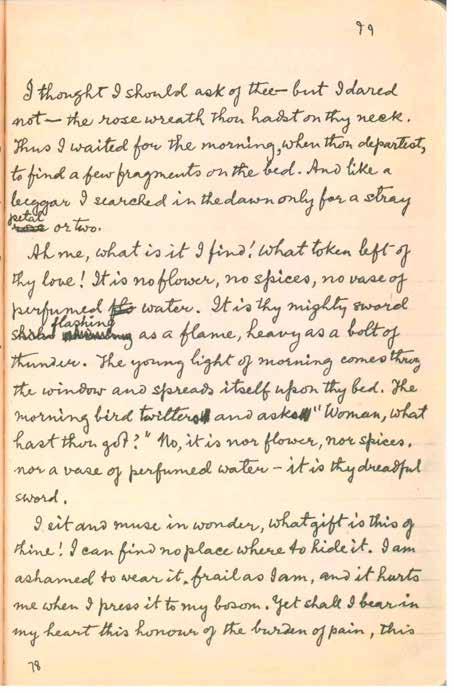 79
I thought I should ask of thee — but I dared
not — the rose wreath thou hadst on thy neck.
Thus I waited for the morning, when thou departest,
to find a few fragments on the bed. And like a
beggar I searched in the dawn only for a stray
petal
rose or two.
Ah me, what is it I find! What token left of
thy love! It is no flower, no spices, no vase of
perfumed water. It is thy mighty sword
flashing
as a flame, heavy as a bolt of
thunder. The young light of morning comes throug
the window and spreads itself upon thy bed. The
morning bird twitters and asks "Woman, what
hast thou got?" No, it is nor flower, nor spices,
nor a vase of perfumed water — it is thy dreadful
sword.
I sit and muse in wonder, what gift is this of
thine! I can find no place where to hide it. I am
ashamed to wear it, frail as I am, and it hurts
me when I press it to my bosom. Yet shall I bear in
my heart this honour of the burden of pain, this
78